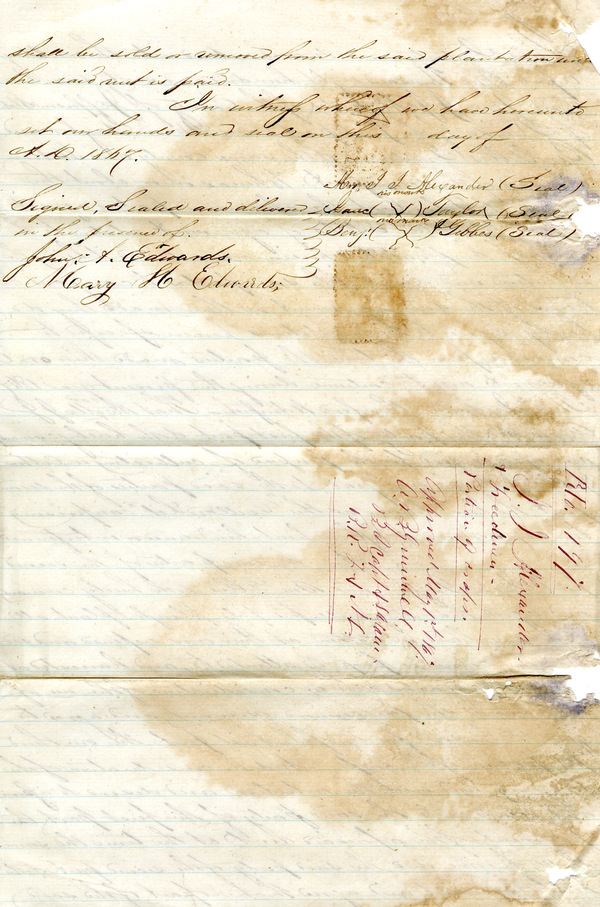 shall be sold or removed from the said plantation until
the said rent is paid.
In witness whereof we have hereunto
set our hands and seal on this day of
A.D. 1867.
J. J. Alexander (Seal)
his mark
Signed, Sealed and delivered Isaac (X) Taylor (Seal)
his mark
in the presence of. Benj. (X) Gibbes (Seal)
John. A. Edwards.
Mary H Edwards,
J. J. Alexander.
Freedmen
Portion of crops.
Approved May 1st /67.